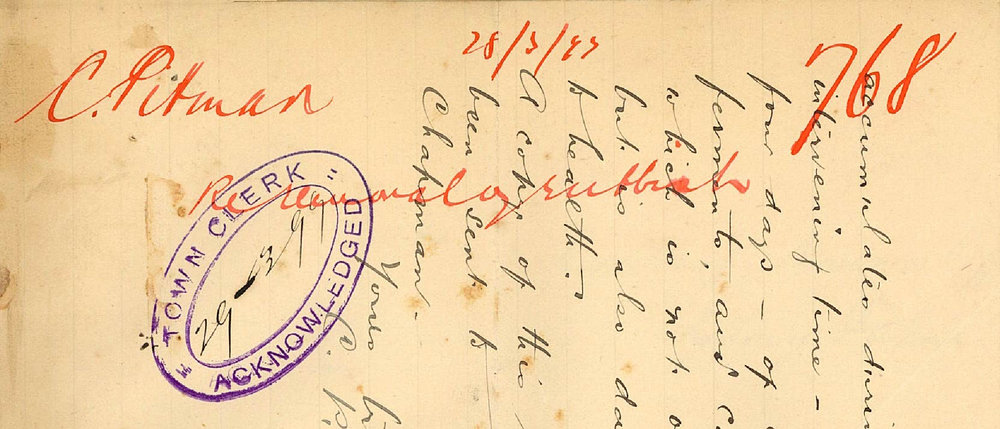 28/3/97
C. Pitman
768
Re removal of rubbish
TOWN CLERK
29 - 3 97
ACKNOWLEDGED
accumulates
intervening time -
four days - of
and
which is not
but is also
to health.
A copy of this
been sent to
Chapman.
Yours